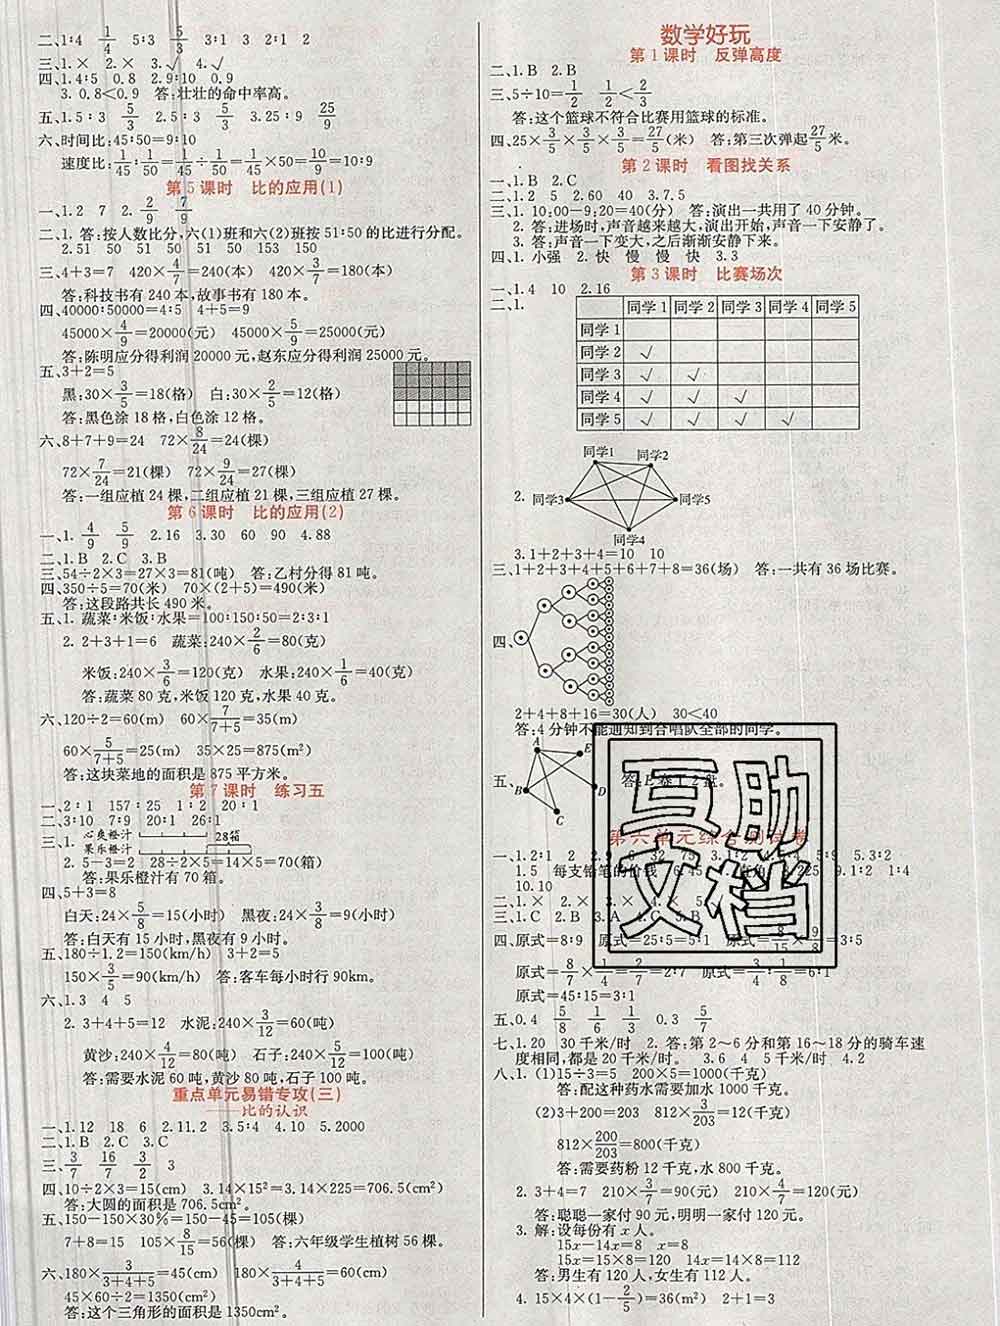 二、1∶4 1/4 5∶3 5/3 3∶1 3 2∶1 2
三、1.× 2.× 3.√ 4.√
四、1.4∶5 0.8 2.9∶10 0.9
3. 0.8＜0.9 答:壮壮的命中率高。
五、1.5∶3 5/3 2.5∶3 5/3 3.25∶9 25/9
六、时间比:45∶50=9∶10
速度比:1/45∶1/50=1/45÷1/50=1/45×50=10/9=10∶9
第5课时 比的应用(1)
一、1.2 7 2. 2/9 7/9
二、1. 答:按人数比分,六(1)班和六(2)班按51∶50的比进行分配。
2.51 50 51 50 51 50 153 150
三、4+3=7 420×4/7=240(本) 420×3/7=180(本)
答:科技书有240本,故事书有180本。
四、40000∶50000=4∶5 4+5=9
45000×4/9=20000(元) 45000×5/9=25000(元)
答:陈明应分得利润20000元,赵东应分得利润25000元。
五、3+2=5
黑:30×3/5=18(格) 白:30×2/5=12(格)
答:黑色涂18格,白色涂12格。
六、8+7+9=24 72×8/24=24(棵)
72×7/24=21(棵) 72×9/24=27(棵)
答:一组应植24棵,二组应植21棵,三组应植27棵。
第6课时 比的应用(2)
一、1. 4/9 5/9 2.16 3.30 60 90 4.88
二、1.B 2.C 3.B
三、54÷2×3=27×3=81(吨) 答:乙村分得81吨。
四、350÷5=70(米) 70×(2+5)=490(米)
答:这段路共长490米。
五、1. 蔬菜∶米饭∶水果=100∶150∶50=2∶3∶1
2. 2+3+1=6 蔬菜:240×2/6=80(克)
米饭:240×3/6=120(克) 水果:240×1/6=40(克)
答:蔬菜80克,米饭120克,水果40克。
六、120÷2=60(m) 60×7/(7+5)=35(m)
60×5/(7+5)=25(m) 35×25=875(m²)
答:这块菜地的面积是875平方米。
第7课时 练习五
一、2∶1 157∶25 1∶2 20∶1
二、3∶10 7∶9 20∶1 26∶1
三、1. 心爽橙汁 果乐橙汁 28箱
2. 5-3=2 28÷2×5=14×5=70(箱)
答:果乐橙汁有70箱。
四、5+3=8
白天:24×5/8=15(小时) 黑夜:24×3/8=9(小时)
答:白天有15小时,黑夜有9小时。
五、180÷1.2=150(km/h) 3+2=5
150×3/5=90(km/h) 答:客车每小时行90km。
六、1.3 4 5
2. 3+4+5=12 水泥:240×3/12=60(吨)
黄沙:240×4/12=80(吨) 石子:240×5/12=100(吨)
答:需要水泥60吨,黄沙80吨,石子100吨。
重点单元易错专攻(三)
——比的认识
一、1.12 18 6 2.11.2 3.5∶4 4.10 5.2000
二、1.B 2.C 3.C
三、3/7 16/7 3/2 3
四、10÷2×3=15(cm) 3.14×15²=3.14×225=706.5(cm²)
答:大圆的面积是706.5cm²。
五、150-150×30%=150-45=105(棵)
7+8=15 105×8/15=56(棵) 答:六年级学生植树56棵。
六、180×3/(3+4+5)=45(cm) 180×4/(3+4+5)=60(cm)
45×60÷2=1350(cm²)
答:这个三角形的面积是1350cm²。
数学好玩
第1课时 反弹高度
二、1.B 2.B
三、5÷10=1/2 1/2＜2/3
答:这个篮球不符合比赛用篮球的标准。
四、25×3/5×3/5×3/5=27/5(米) 答:第三次弹起27/5米。
第2课时 看图找关系
一、1.B 2.C
二、1.2 5 2.60 40 3.7.5
三、1. 10:00-9:20=40(分) 答:演出一共用了40分钟。
2. 答:进场时,声音越来越大,演出开始,声音一下安静了。
3. 答:声音一下变大,之后渐渐安静下来。
四、1. 小强 2. 快 慢 慢 快 3.3
第3课时 比赛场次
一、1.4 10 2.16
二、1.
同学1 同学2 同学3 同学4 同学5
同学1
同学2 √
同学3 √ √
同学4 √ √ √
同学5 √ √ √ √
2. 同学1 同学2 同学3 同学5 同学4
3.1+2+3+4=10 10
三、1+2+3+4+5+6+7+8=36(场) 答:一共有36场比赛。
四、
2+4+8+16=30(人) 30＜40
答:4分钟不能通知到合唱队全部的同学。
五、 A E B D C 答:E赛了2盘。
互助文档
第六单元综合测试卷
一、1.2∶1 2 2.9 6 32 75 3.1∶2 5∶9 5.3∶2
1.5 每支铅笔的价钱 6.45 直角 225 9.1∶2 1∶4
10.10
二、1.× 2.× 3.× 4.× 5.
三、1.C 2.B 3.A 4.C 5.B
四、原式=8∶9 原式=25∶5=5∶1 原式=8/15×9/8=3∶5
原式=8/7×1/4=2/7=2∶7 原式=3/4∶1/8=6∶1
原式=45∶15=3∶1
五、0.4 5/8 1/6 1/3 0.3 5/7
七、1.20 30千米/时 2. 答:第2～6分和第16～18分的骑车速
度相同,都是20千米/时。 3.6 4 5千米/时 4.2
八、1. (1)15÷3=5 5×200=1000(千克)
答:配这种药水需要加水1000千克。
(2)3+200=203 812×3/203=12(千克)
812×200/203=800(千克)
答:需要药粉12千克,水800千克。
2. 3+4=7 210×3/7=90(元) 210×4/7=120(元)
答:聪聪一家付90元,明明一家付120元。
3. 解:设每份有x人。
15x-14x=8 x=8
15x=15×8=120 14x=14×8=112
答:男生有120人,女生有112人。
4. 15×4×(1-2/5)=36(m²) 2+1=3